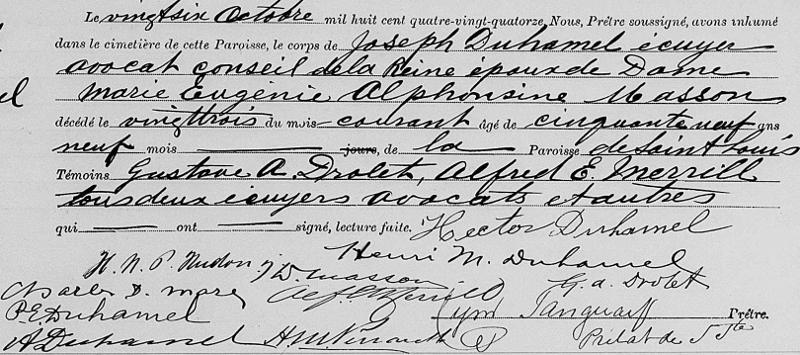 Le vingtsix Octobre mil huit cent quatre-vingt-quatorze, Nous, Prêtre soussigné, avons inhumé
dans le cimetière de cette Paroisse, le corps de Joseph Duhamel écuyer
avocat conseil de la Reine époux de Dame
Marie Eugénie Alphonsine Masson
décédé le vingttrois du mois courant âgé de cinquante neuf ans
neuf mois jours, de la Paroisse de Saint Louis
Témoins Gustave A. Drolet, Alfred E. Merrill
tous deux écuyers avocats et autres
qui ont signé, lecture faite. Hector Duhamel
Henri M. Duhamel
D. Masson
G. A. Drolet
Charles D.
P. E. Duhamel
Tanguay Prêtre.
A Duhamel
Prélat de